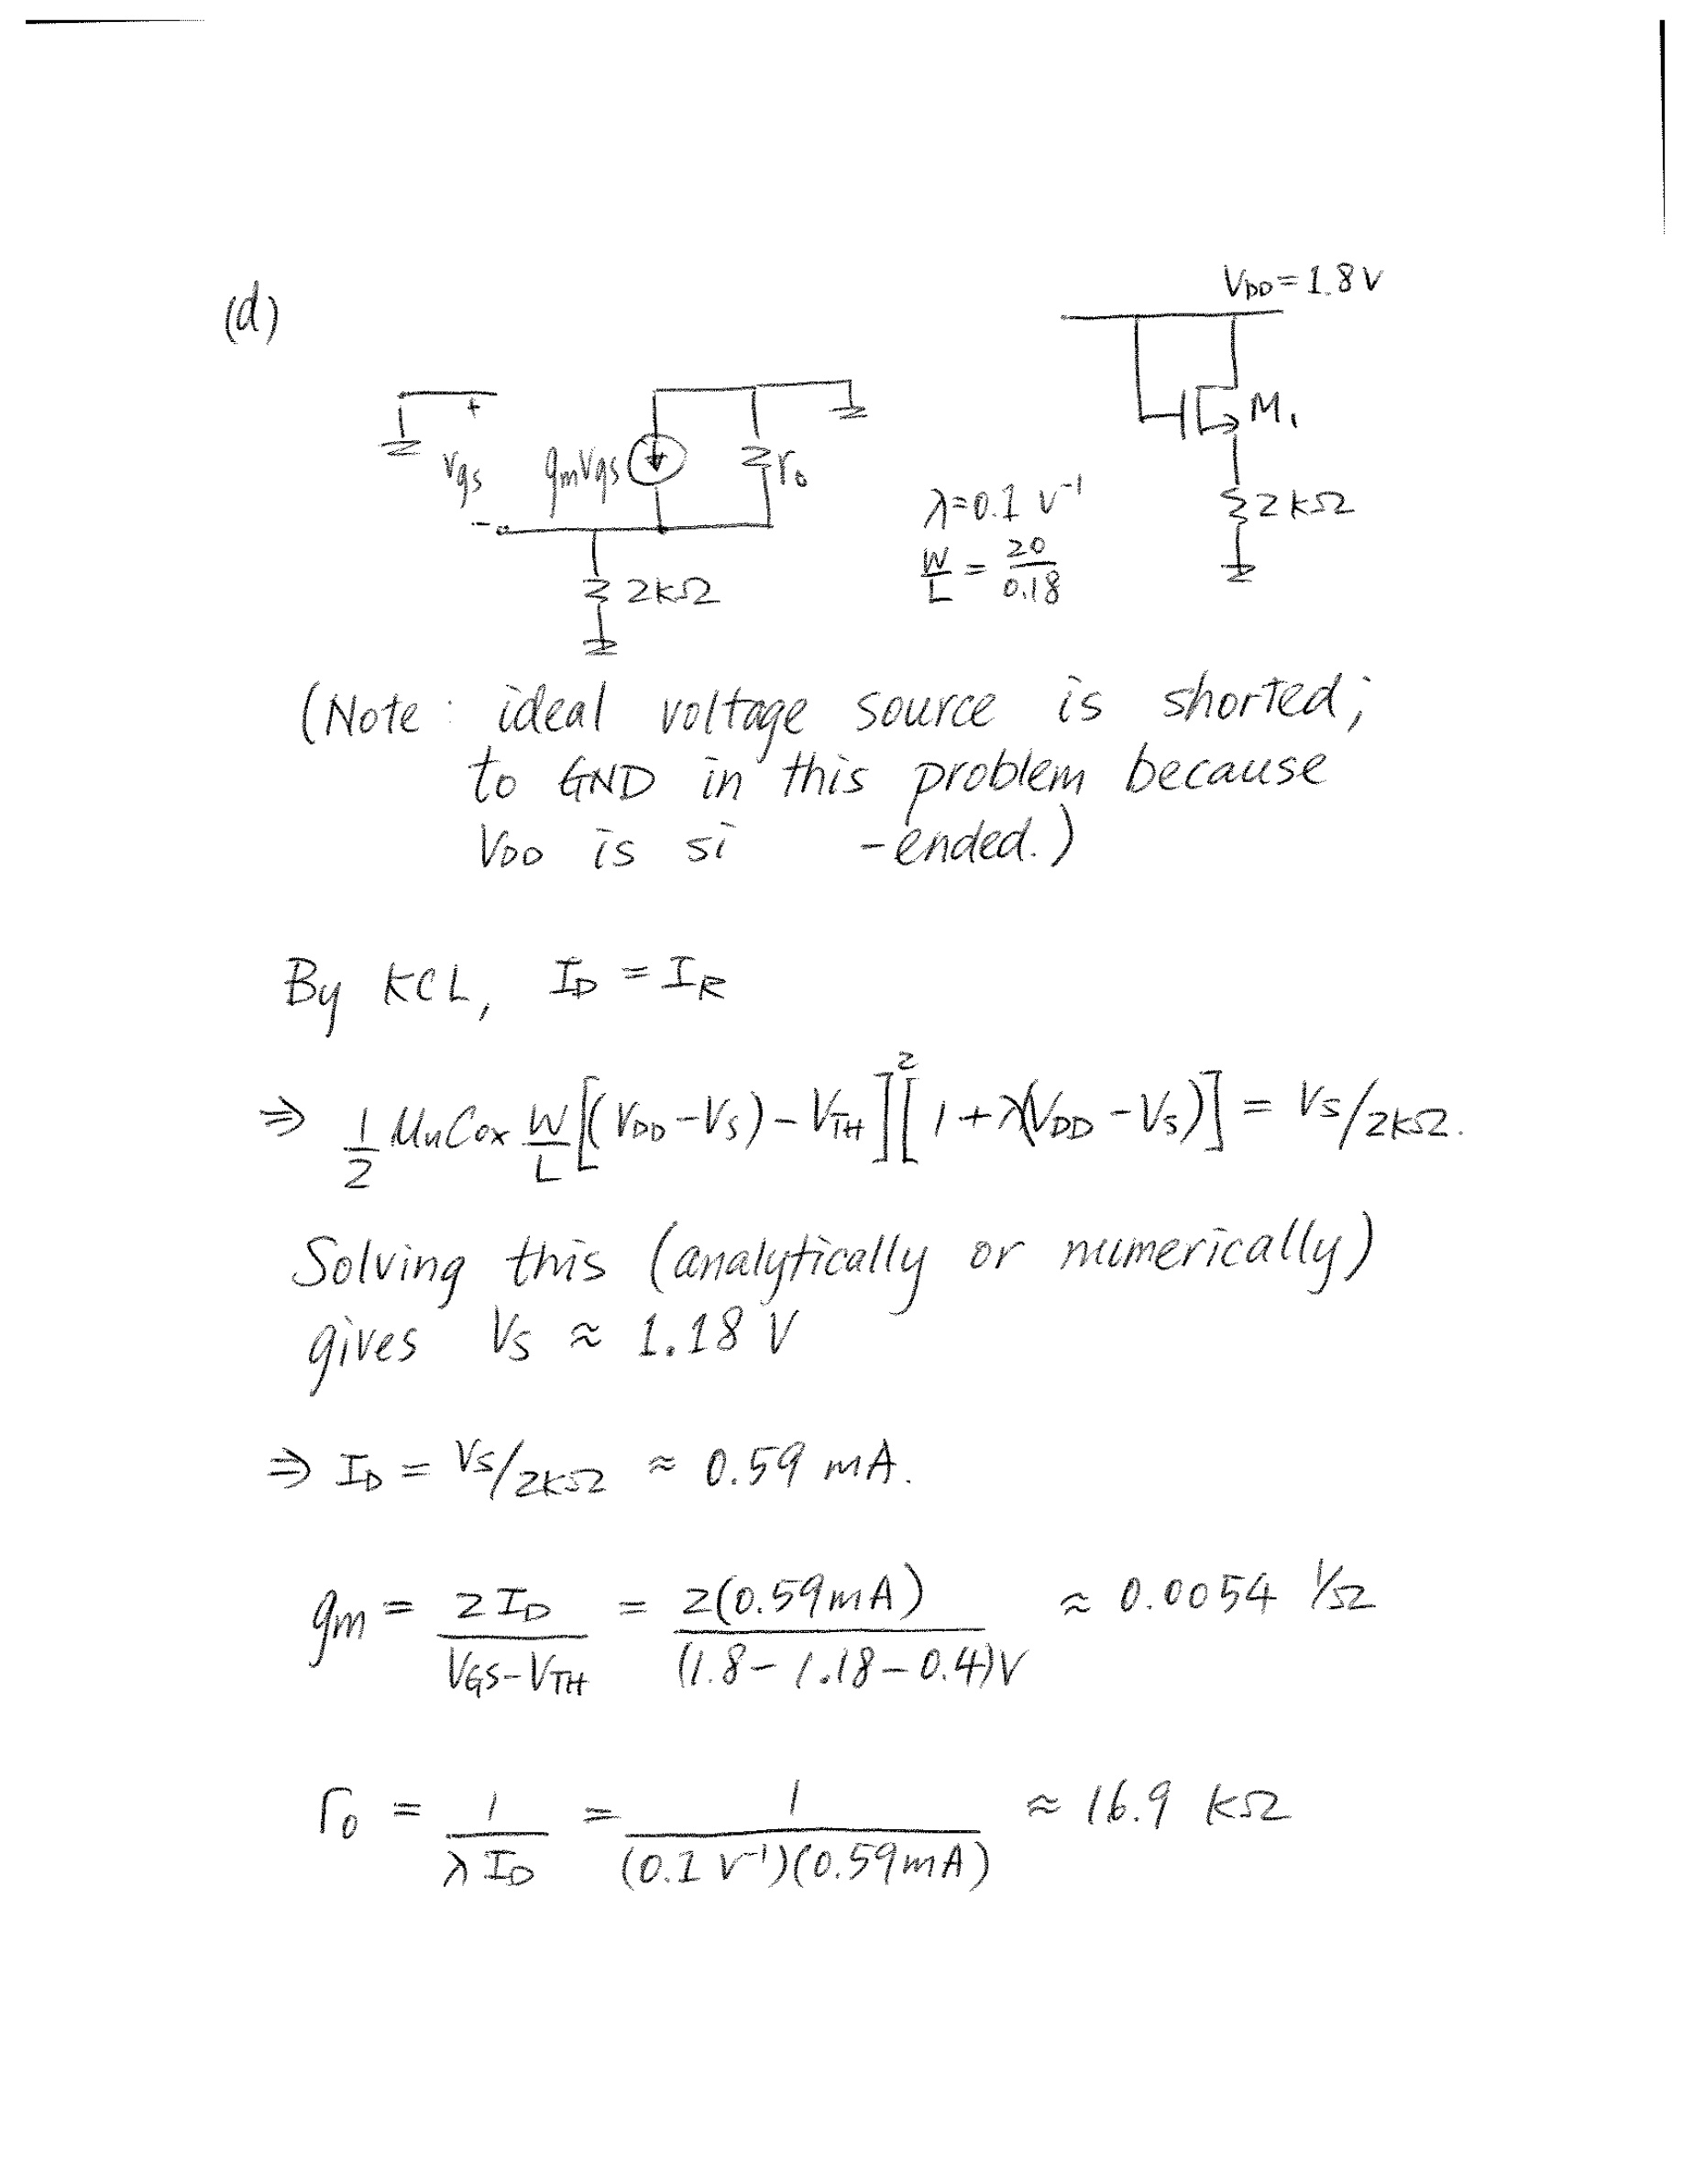 (d)
VDD = 1.8 V
M1
2 kΩ
λ = 0.1 V⁻¹
W/L = 20/0.18
+
vgs
-
gmvgs
ro
2kΩ
(Note : ideal voltage source is shorted;
to GND in this problem because
VDD is si -ended.)
By KCL, ID = IR
⇒ 1/2 μnCox W/L [(VDD - VS) - VTH]² [1 + λ(VDD - VS)] = VS/2kΩ.
Solving this (analytically or numerically)
gives VS ≈ 1.18 V
⇒ ID = VS/2kΩ ≈ 0.59 mA.
gm = 2 ID / (VGS - VTH) = 2(0.59mA) / (1.8 - 1.18 - 0.4)V ≈ 0.0054 1/Ω
ro = 1 / (λ ID) = 1 / ((0.1 V⁻¹)(0.59mA)) ≈ 16.9 kΩ